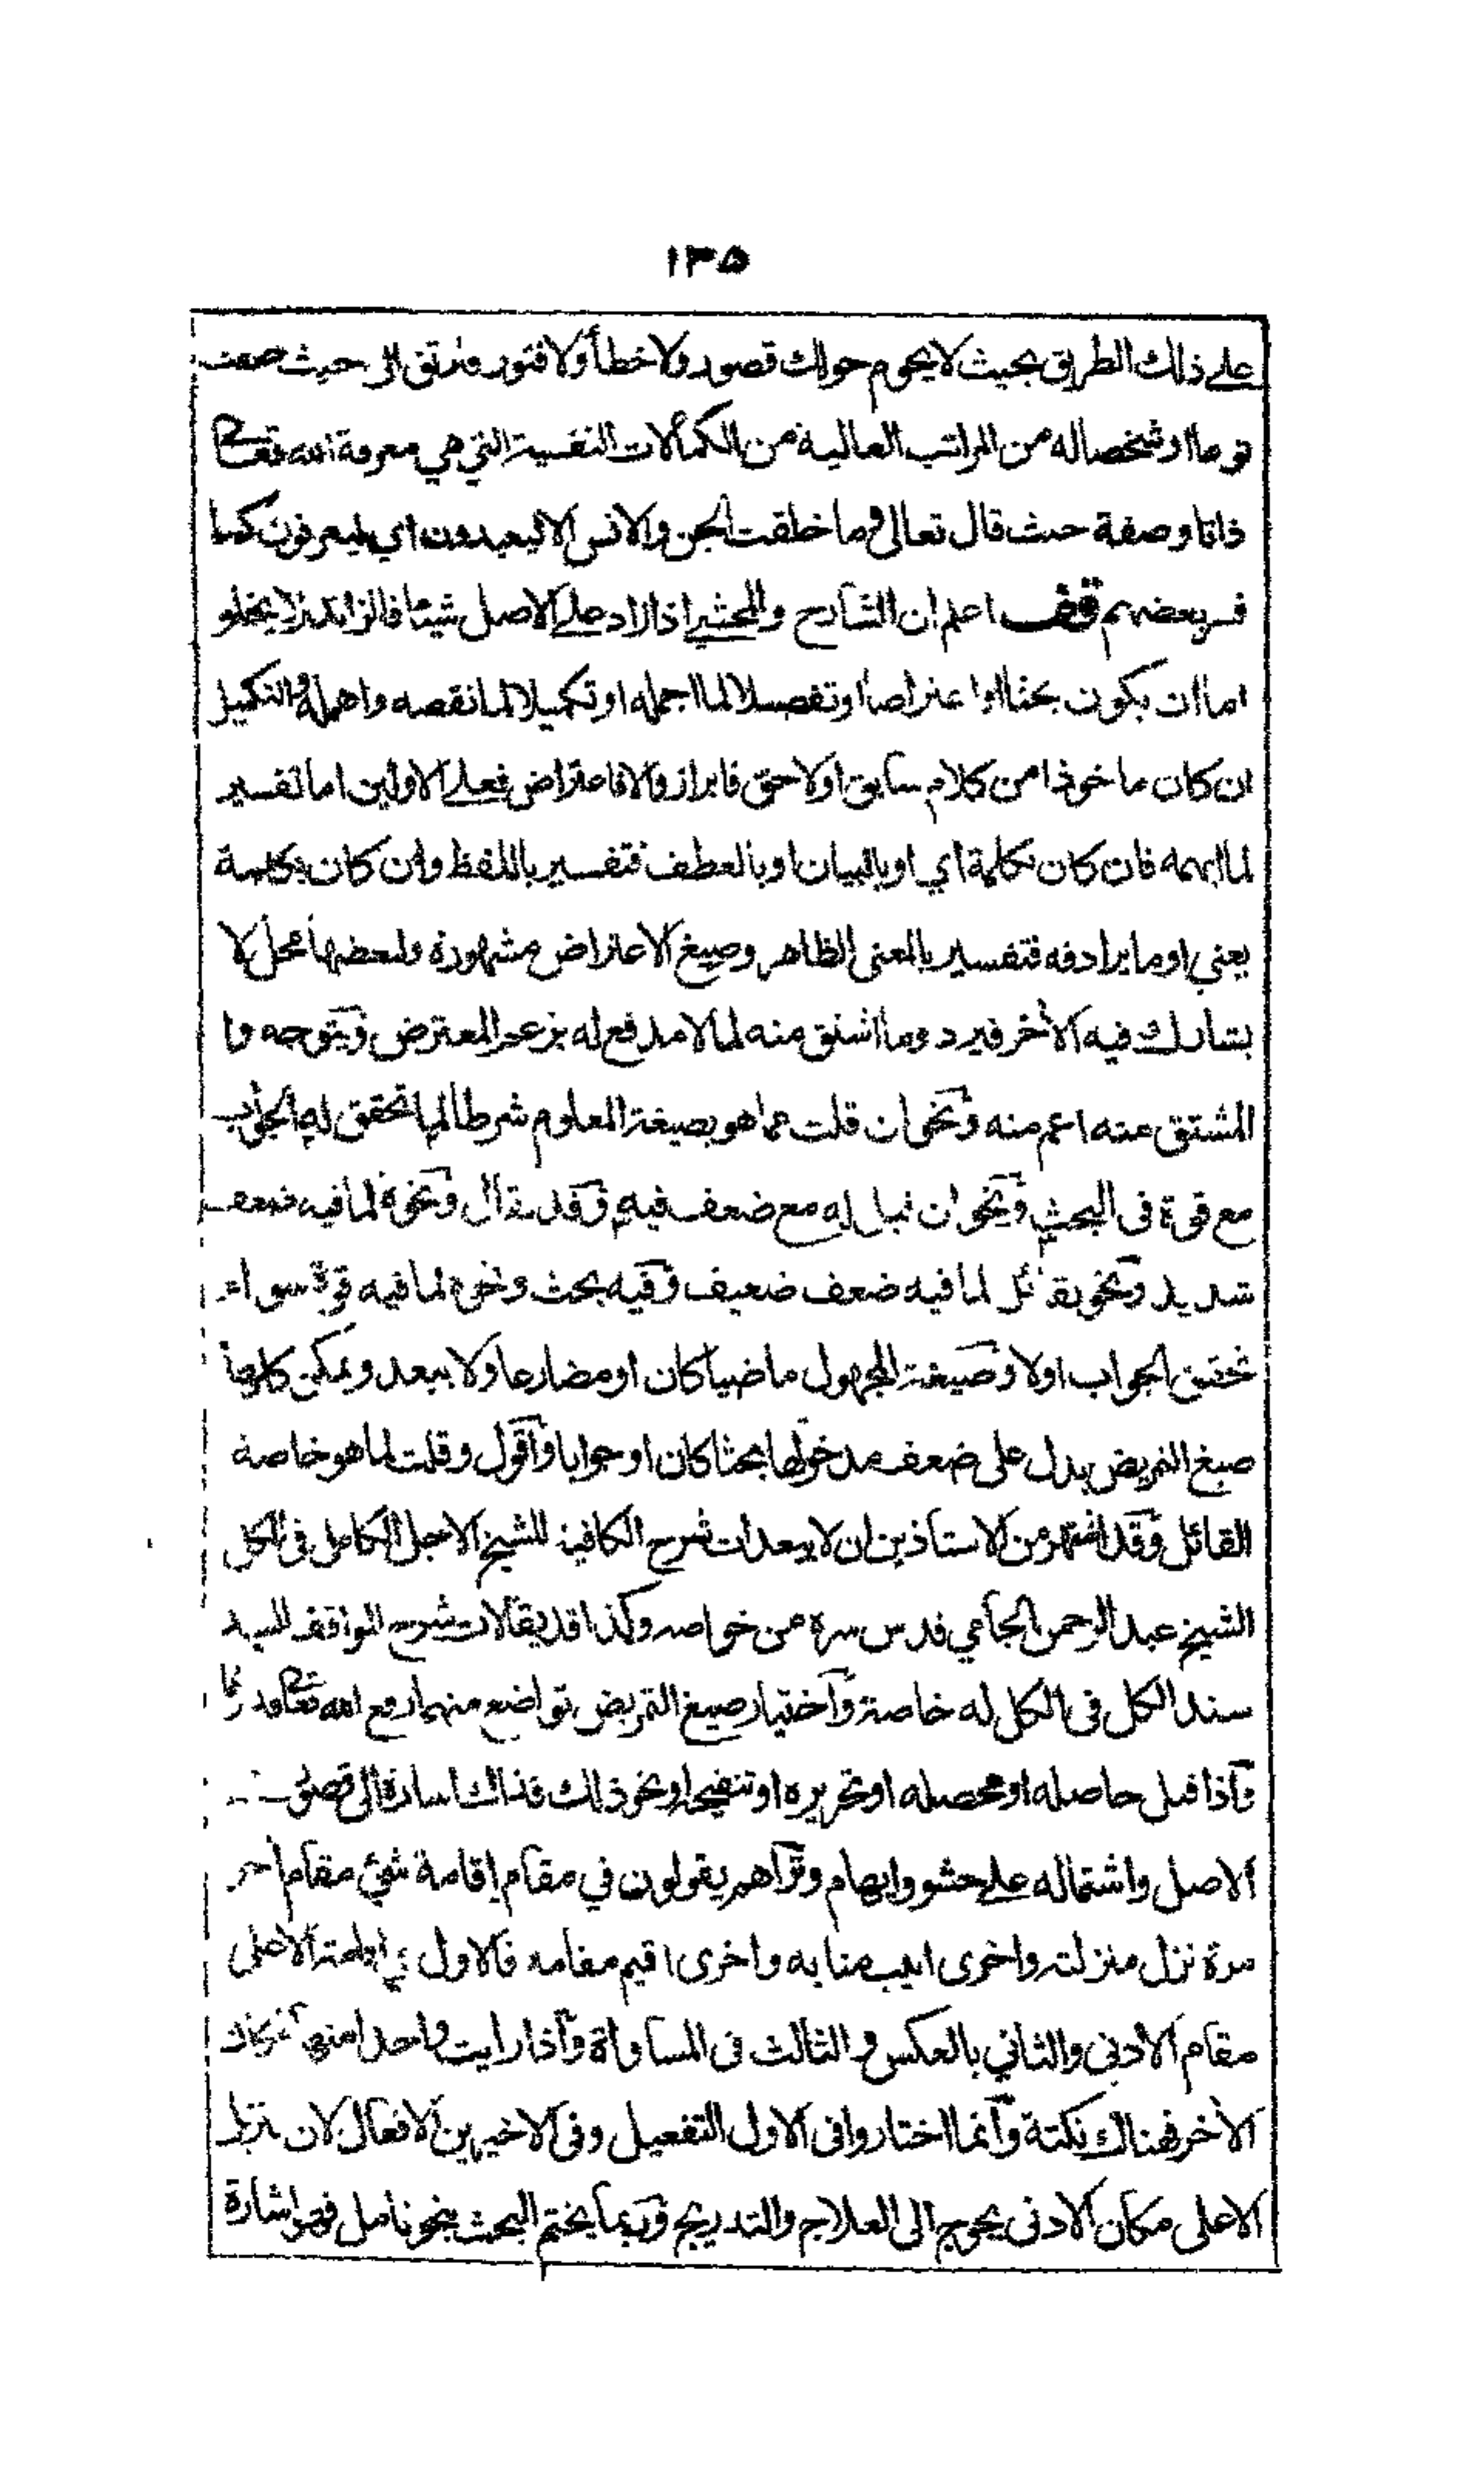 ١٣٥
على ذلك الطريق بحيث لا يحوم حولك قصور ولا خطأ ولا فتور وترتقي الى حيث
نوعا او شخصا له من المراتب العالية من الكمالات النفسية التي هي معرفة الله تعالى
ذاتا وصفة حيث قال تعالى وما خلقت الجن والانس الا ليعبدون اي ليعرفون كما
فسر بعضهم قف اعلم ان الشارح والمحشي اذا زاد على الاصل شيئا فالزائد لا يخلو
اما ان يكون بحثا او اعتراضا او تفصيلا لما اجمله او تكميلا لما نقصه واهمله والتكميل
ان كان ماخوذا من كلام سابق او لاحق فابراز والا فاعتراض فعلى الاولين اما تفسير
لما ابهمه فان كان بكلمة اي او بالبيان او بالعطف فتفسير باللفظ وان كان بكلمة
يعني او ما يرادفه فتفسير بالمعنى الظاهر وصيغ الاعتراض مشهورة ولبعضها محل لا
يشارك فيه الآخر فيرد وما اشتق منه لما لا مدفع له بزعم المعترض ويتوجه وما
المشتق منه اعم منه ونحو ان قلت مما هو بصيغة المعلوم شرطا لما تحقق له الجواب
مع قوة في البحث ونحو ان قيل له مع ضعف فيه وقد يقال ونحوه لما فيه ضعف
شديد ونحو يقال لما فيه ضعف ضعيف وفيه بحث ونحوه لما فيه قوة سواء
تحقق الجواب اولا وصيغة المجهول ماضيا كان او مضارعا ولا يبعد ويمكن كلها
صيغ التمريض يدل على ضعف مدخولها بحثا كان او جوابا واقول وقلت لما هو خاصة
القائل وقد اشتهر من الاستاذين ان لا يبعدات شرح الكافية للشيخ الاجل الكامل في الكل
الشيخ عبد الرحمن الجامي قدس سره من خواصه وكذا قد يقالات شرح المواقف للسيد
سند الكل في الكل له خاصة واختيار صيغ التمريض تواضع منهما رفع الله تعالى قدرهما
واذا قيل حاصله او محصله او تحريره او تنقيحه او نحو ذلك فذاك اشارة الى قصور
الاصل واشتماله على حشو وابهام وتراهم يقولون في مقام إقامة شيئ مقام آخر
مرة نزل منزلته واخرى انيب منابه واخرى اقيم مقامه فالاول في اقامة الاعلى
مقام الادنى والثاني بالعكس والثالث في المساواة واذا رايت واحدا منها
الآخر فهناك نكتة وانما اختاروا في الاول التفعيل وفي الاخيرين الافعال لان تنزيل
الاعلى مكان الادنى يحوج الى العلاج والتدريج وربما يختم البحث بنحو تامل فهو اشارة